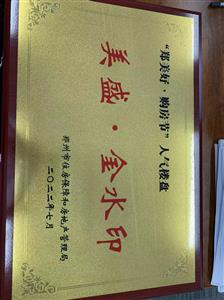 “郑美好·购房节”人气楼盘
美盛·金水印
郑州市住房保障和房地产管理局
二〇二二年七月